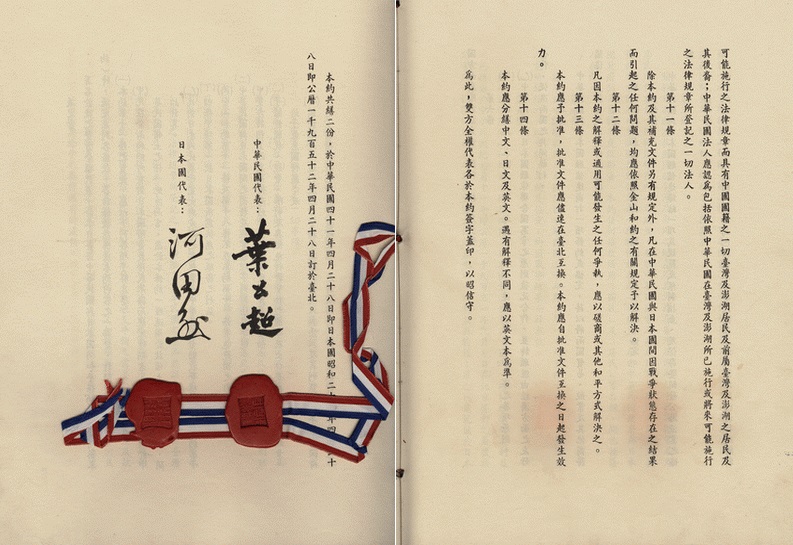 可能施行之法律規章而具有中國國籍之一切臺灣及澎湖居民及前屬臺灣及澎湖之居民及
其後裔；中華民國法人應認爲包括依照中華民國在臺灣及澎湖所已施行或將來可能施行
之法律規章所登記之一切法人。
第十一條
除本約及其補充文件另有規定外，凡在中華民國與日本國間因戰爭狀態存在之結果
而引起之任何問題，均應依照金山和約之有關規定予以解決。
第十二條
凡因本約之解釋或適用可能發生之任何爭執，應以磋商或其他和平方式解決之。
第十三條
本約應予批准，批准文件應儘速在臺北互換。本約應自批准文件互換之日起發生效
力。
第十四條
本約應分繕中文、日文及英文。遇有解釋不同，應以英文本爲準。
爲此，雙方全權代表各於本約簽字蓋印，以昭信守。
本約共繕二份，於中華民國四十一年四月二十八日即日本國昭和二十年四十
八日即公曆一千九百五十二年四月二十八日訂於臺北。
中華民國代表：葉公超
日本國代表：河田烈